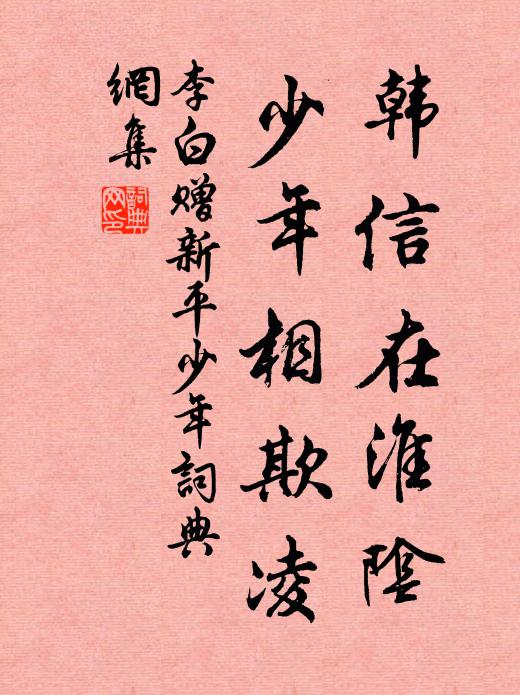 韩信在淮陰
少年相欺凌
李白赠新平少年詞典
網集
詞典
网印